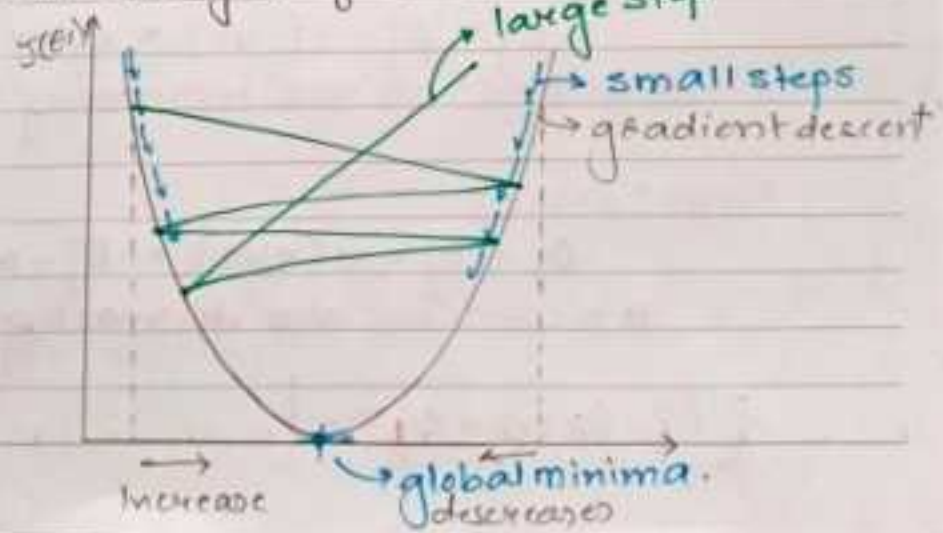 large
J(θ1)
small steps
gradient descent
global minima.
Increase
descreases